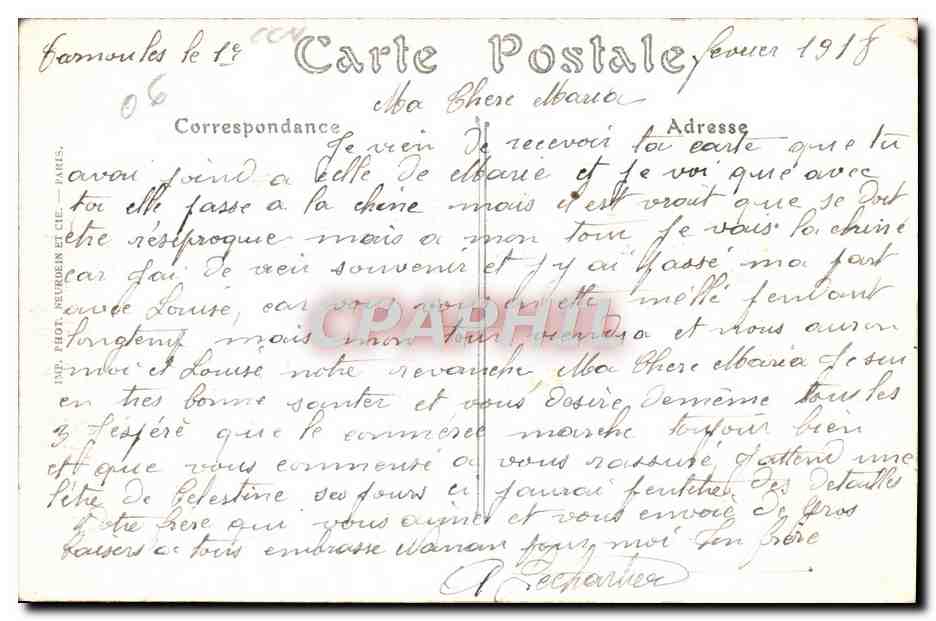 CCN
Carte Postale
Tarnoules le 1e fevrier 1918
06
Ma Chere Maria
Correspondance
Adresse
Je vien de recevoir ta carte que tu
avai joind a celle de Marie et je voi que avec
toi elle passe a la chine mais il est vrait que se doit
etre résiproque mais a mon tour je vais la chiné
car j'ai de vieu souvenir et j'y ai passé ma part
avec Louise, car vous vous en ette mellé pendant
longtemp mais mon tour viendra et nous auron
moi et Louise notre revanche Ma Chere Maria Je sui
en tres bonne santer et vous desire demème tous les
3 J'espéré que le commerce marche toujour bien
et que vous commensé a vous rassuré, j'attend une
letre de Celestine ses jours ci j'aurai peutitre des detailles
Votre frère qui vous aime et vous envoie de gros
baisers a tous embrasse Maman pour moi Ton frère
IMP. PHOT. NEURDEIN ET CIE. — PARIS.
CPAPHIL